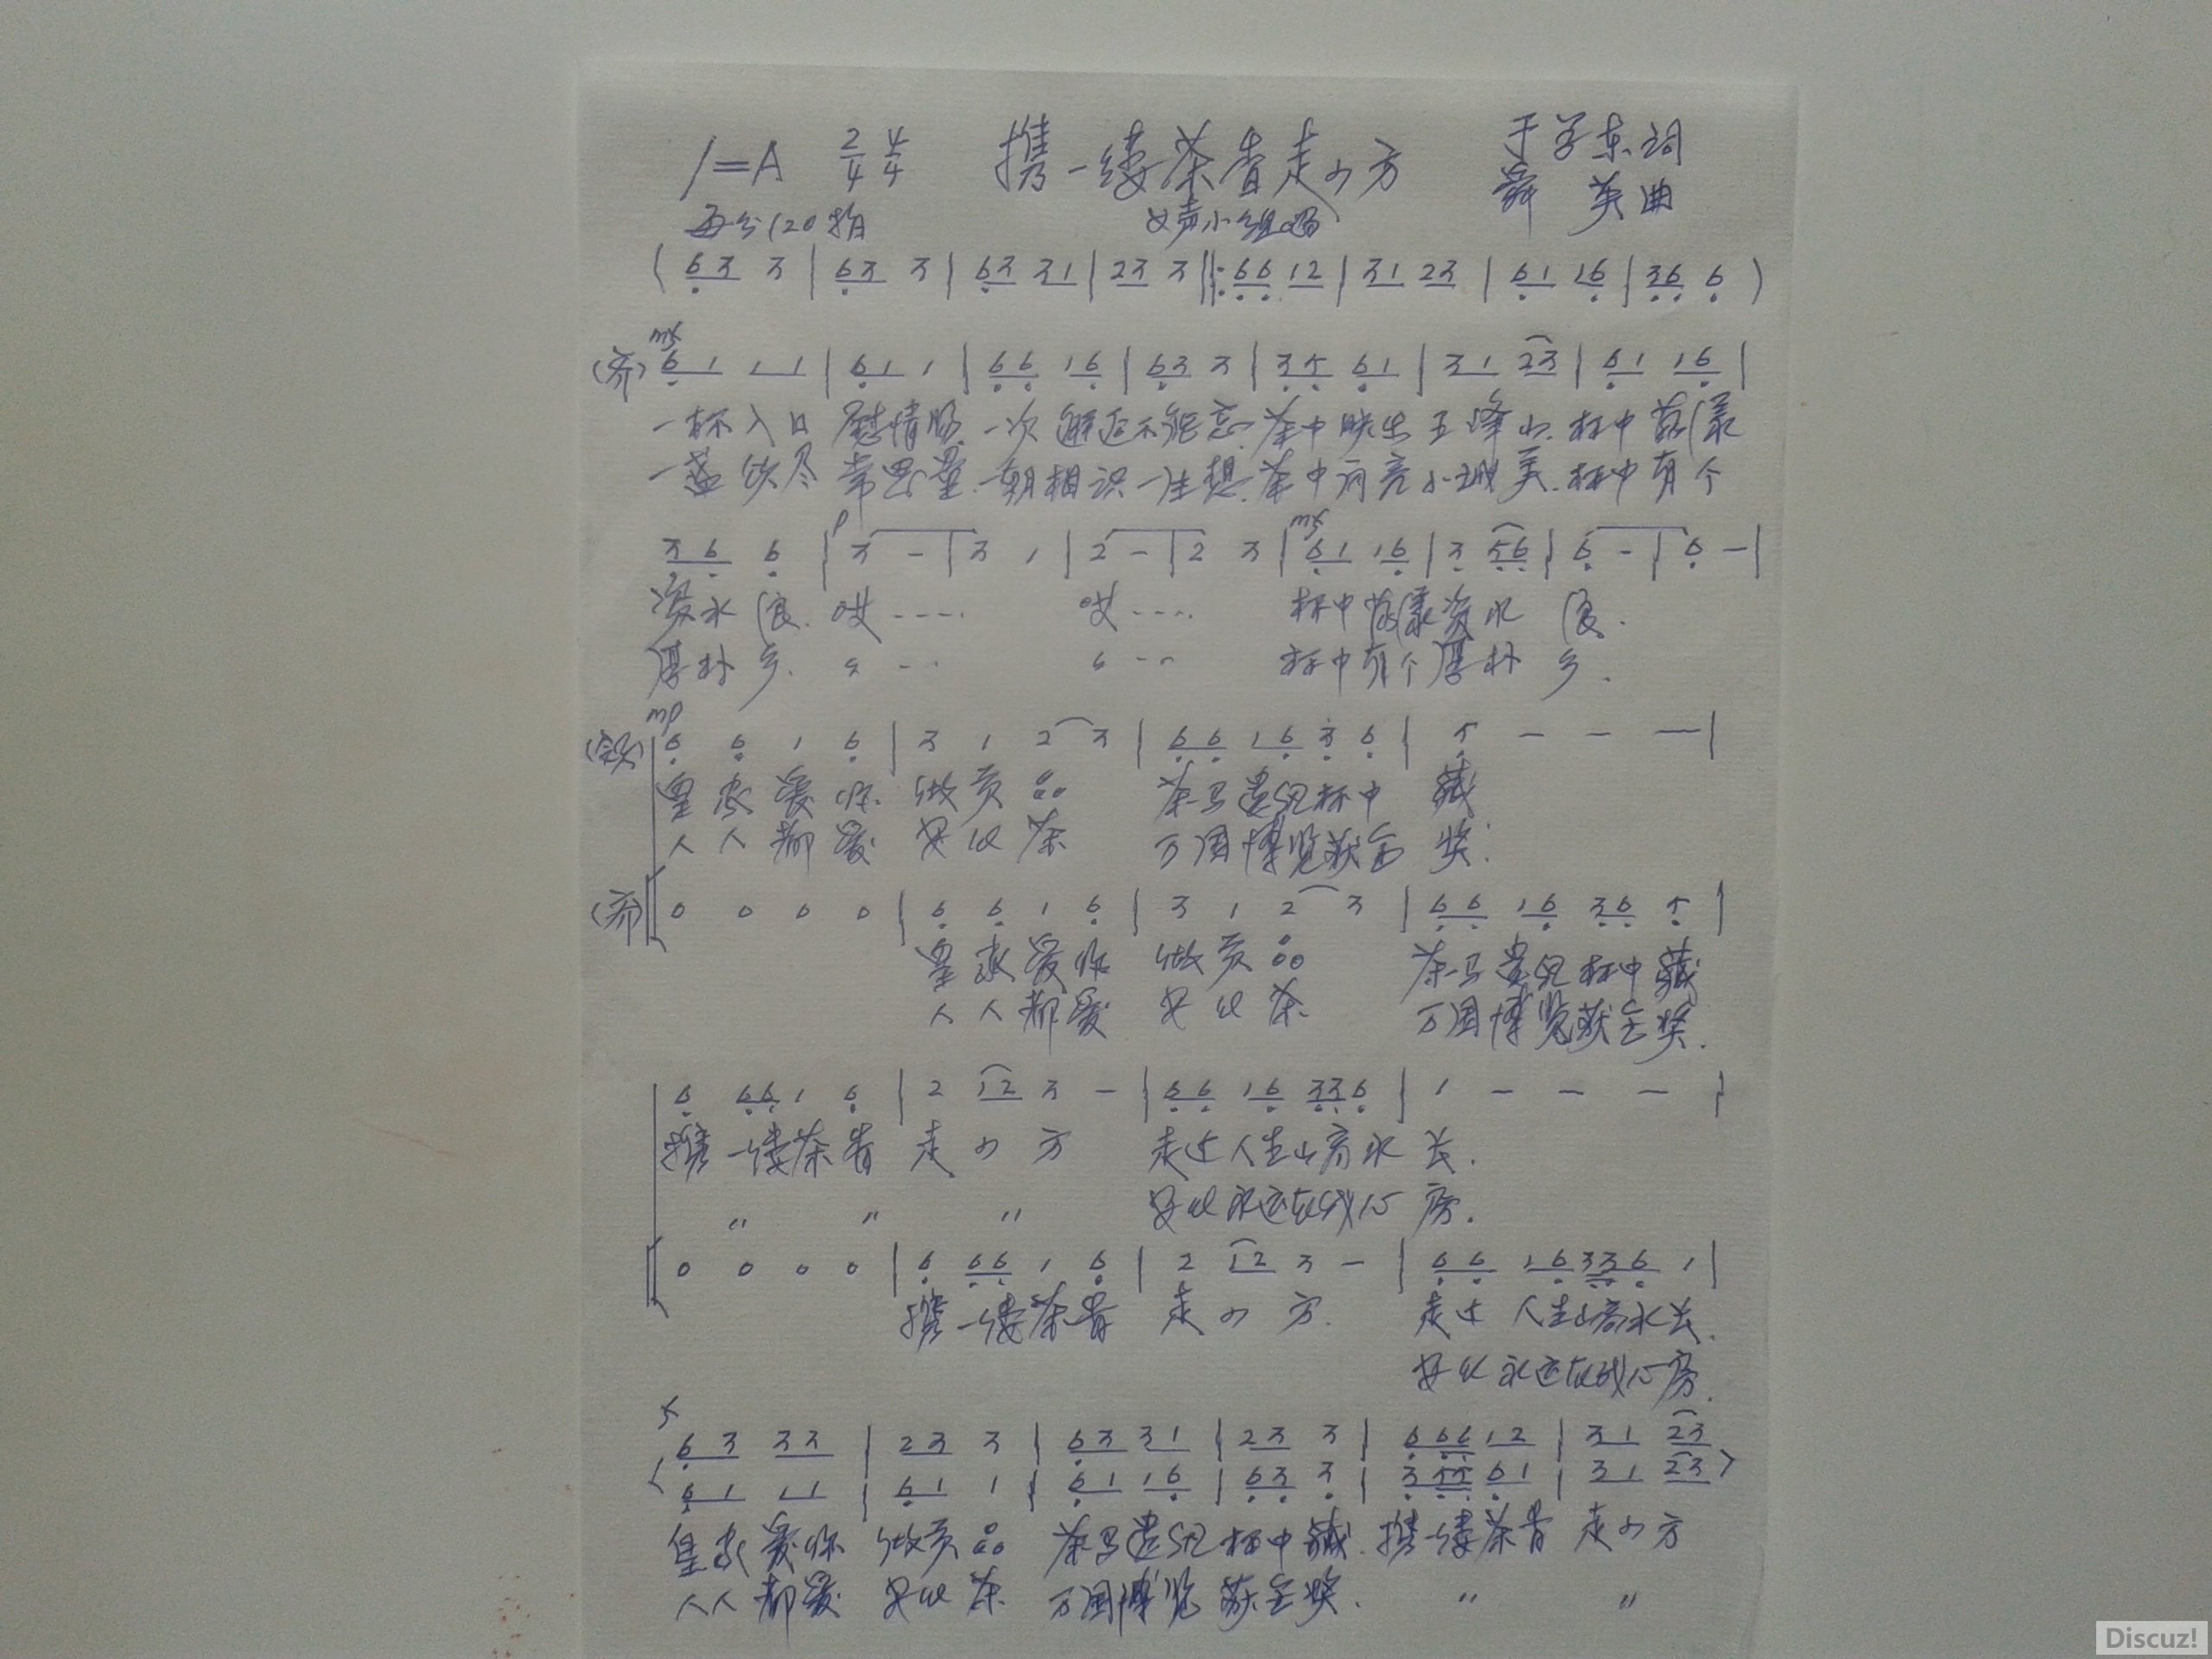 1=A 2/4 4/4 携一缕茶香走四方 于学东词
每分120拍 女声小组唱 舜英曲
( 63 3 | 63 3 | 63 31 | 23 3 ‖: 66 12 | 31 23 | 61 16 | 36 6 )
mf
(齐) 61 11 | 61 1 | 66 16 | 63 3 | 35 61 | 31 23 | 61 16 |
一杯入口 慰情肠.一次邂逅不能忘.茶中映出五峰山.杯中荡漾
一盏饮尽 常思量.一朝相识一生想.茶中有亮小城美.杯中有个
p mf
36 6 | 3 - | 3 1 | 2 - | 2 3 | 61 16 | 3 56 | 6 - | 6 - |
资水浪. 哎---- 哎---- 杯中荡漾资水 浪.
厚朴乡. 杯中有个厚朴 乡.
mp
6 6 1 6 | 3 1 2 3 | 66 16 3 6 | 5 - - - |
皇家爱你 做贡品 茶马遗风杯中 藏
人人都爱 安化茶 万国博览获金 奖.
(齐) 0 0 0 0 | 6 6 1 6 | 3 1 2 3 | 66 16 36 5 |
皇家爱你 做贡品 茶马遗风杯中藏
人人都爱 安化茶 万国博览获金奖.
6 66 1 6 | 2 12 3 - | 66 16 336 | 1 - - - |
携一缕茶香 走四方 走过人生山高水 长.
〃 〃 〃 安化永远在我心 房.
0 0 0 0 | 6 66 1 6 | 2 12 3 - | 66 16 336 1 |
携一缕茶香 走四方. 走过 人生山高水长.
安化 永远在我心房.
f
63 33 | 23 3 | 63 31 | 23 3 | 666 12 | 31 23
61 11 | 61 1 | 61 16 | 63 3 | 355 61 | 31 23
皇家爱你 做贡品 茶马遗风杯中藏.携一缕茶香 走四方
人人都爱 安化茶 万国博览 获金奖. 〃 〃
Discuz!